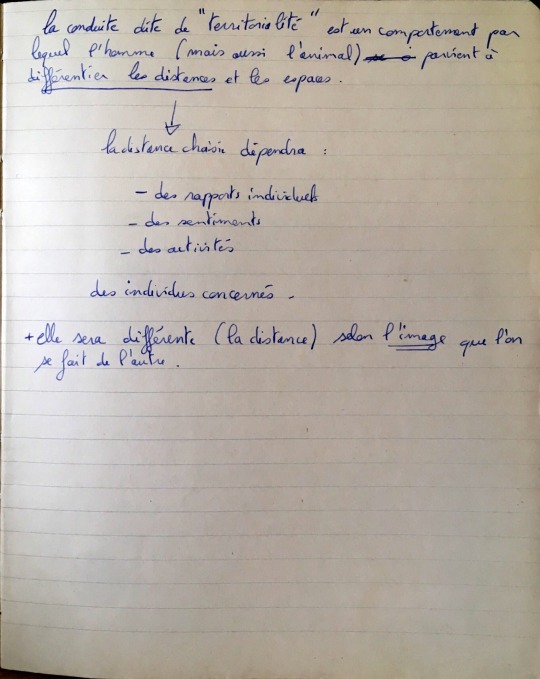 la conduite dite de "territorialité" est un comportement par
lequel l'homme (mais aussi l'animal) parvient à
différentier les distances et les espaces.
la distance choisie dépendra :
- des rapports individuels
- des sentiments
- des activités
des individus concernés.
+ elle sera différente (la distance) selon l'image que l'on
se fait de l'autre.